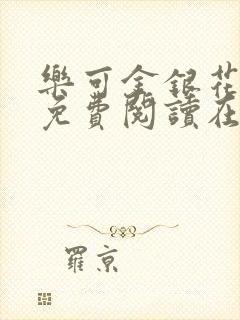 樂可金銀花
免費閱讀在
羅京